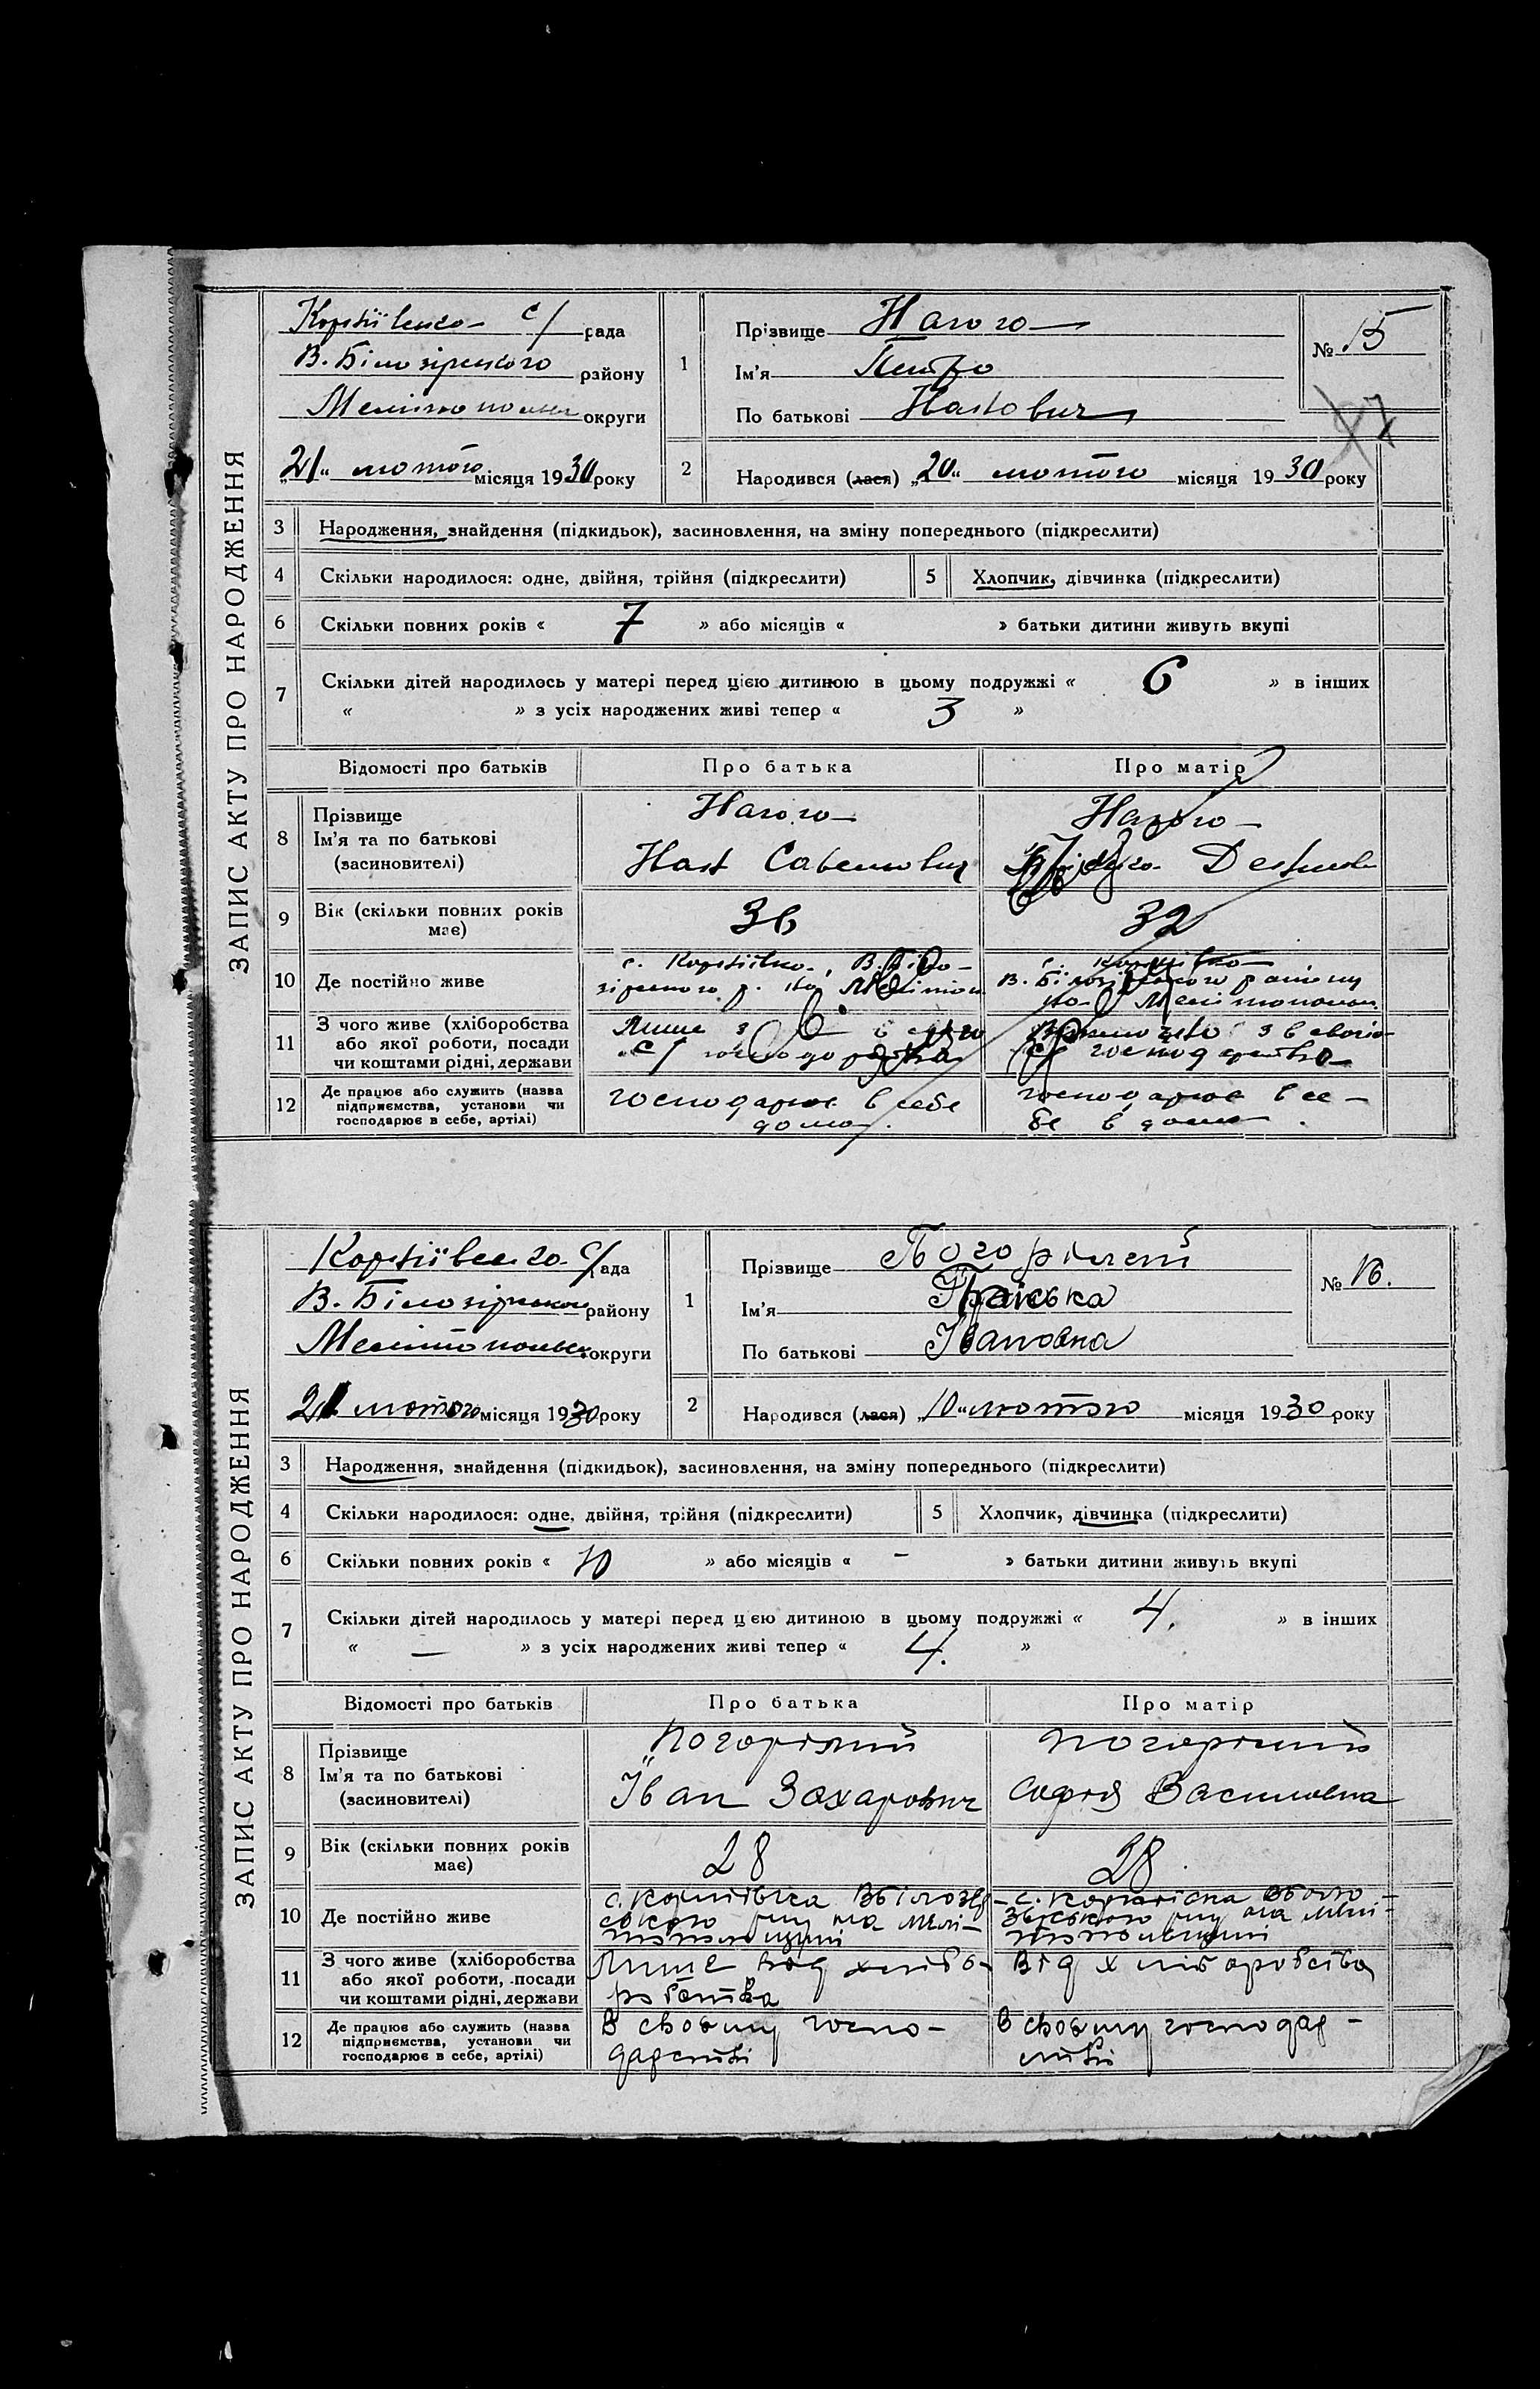 ЗАПИС АКТУ ПРО НАРОДЖЕННЯ
с/рада
В. Білозірського району
Мелітопольськ округи
„21“ лютого місяця 1930 року
1
Прізвище Нагого
Ім'я Петро
По батькові
№ 15
2
Народився (лася) „20“ лютого місяця 1930 року
3 Народження, знайдення (підкидьок), засиновлення, на зміну попереднього (підкреслити)
4 Скільки народилося: одне, двійня, трійня (підкреслити)
5 Хлопчик, дівчинка (підкреслити)
6 Скільки повних років « 7 » або місяців « » батьки дитини живуть вкупі
7 Скільки дітей народилось у матері перед цією дитиною в цьому подружжі « 6 » в інших
« » з усіх народжених живі тепер « 3 »
Відомості про батьків
Про батька
Про матір
8 Прізвище
Ім'я та по батькові
(засиновителі)
Нагого
Нагого
9 Вік (скільки повних років
має)
36
32
10 Де постійно живе
с.
В. Білозірського району
на
11 З чого живе (хліборобства
або якої роботи, посади
чи коштами рідні, держави
с/господарства
с/господарства
12 Де працює або служить (назва
підприємства, установи чи
господарює в себе, артілі)
господарює в себе
дома.
господарює в се-
бе в дома.
ЗАПИС АКТУ ПРО НАРОДЖЕННЯ
с/рада
В. Білозірського району
Мелітопольськ округи
21 лютого місяця 1930 року
1
Прізвище Погорілей
Ім'я Пріська
По батькові Івановна
№ 16.
2
Народився (лася) „10“ лютого місяця 1930 року
3 Народження, знайдення (підкидьок), засиновлення, на зміну попереднього (підкреслити)
4 Скільки народилося: одне, двійня, трійня (підкреслити)
5 Хлопчик, дівчинка (підкреслити)
6 Скільки повних років « 10 » або місяців « - » батьки дитини живуть вкупі
7 Скільки дітей народилось у матері перед цією дитиною в цьому подружжі « 4. » в інших
« — » з усіх народжених живі тепер « 4. »
Відомості про батьків
Про батька
Про матір
8 Прізвище
Ім'я та по батькові
(засиновителі)
Погорілий
Іван Захарович
Погорілий
Софія Василовна
9 Вік (скільки повних років
має)
28
28.
10 Де постійно живе
на Мелі-
топольщині
на Мелі-
топольщині
11 З чого живе (хліборобства
або якої роботи, посади
чи коштами рідні, держави
Лише від хлібо-
робства
Від хліборобства
12 Де працює або служить (назва
підприємства, установи чи
господарює в себе, артілі)
В своєму госпо-
дарстві
В своєму господар-
стві